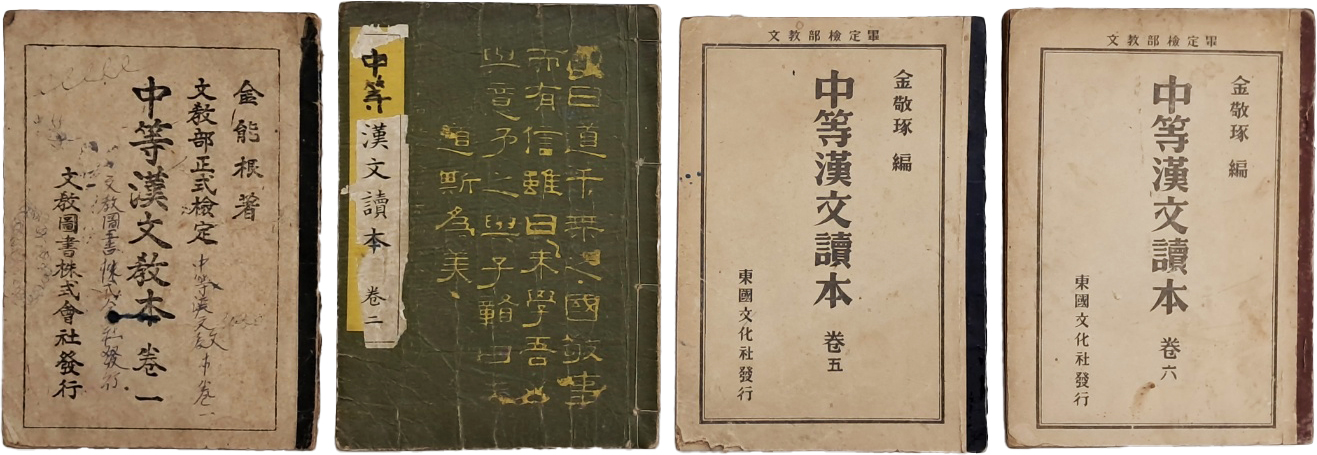 金能根 著
文敎部正式檢定
中等漢文敎本 卷一
文敎圖書株式會社發行
中等漢文敎本 卷一
文敎圖書株式會社發行
曰道千乘之國敬事
而有信雖曰未學吾
之與子
道斯為美
中等漢文讀本 卷二
文教部檢定畢
金敬琢 編
中等漢文讀本 卷五
東國文化社發行
文教部檢定畢
金敬琢 編
中等漢文讀本 卷六
東國文化社發行